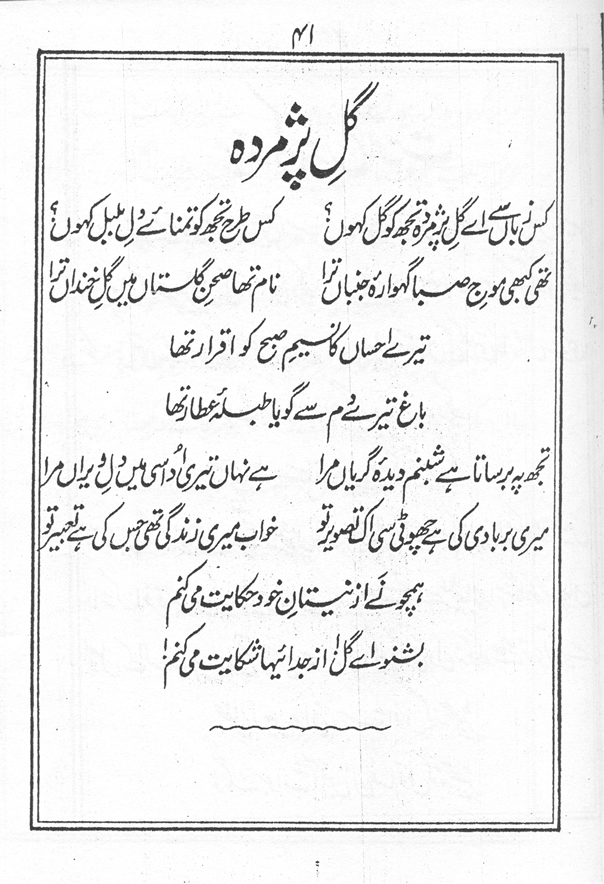 ۴۱
گلِ پژمردہ
کس زباں سے اے گلِ پژمردہ تجھ کو گل کہوں؟ کس طرح تجھ کو تمنائے دلِ بلبل کہوں؟
تھی کبھی موجِ صبا گہوارۂ جنباں ترا نام تھا صحنِ گلستاں میں گلِ خنداں ترا
تیرے احساں کا نسیمِ صبح کو اقرار تھا
باغ تیرے دم سے گویا طبلۂ عطار تھا
تجھ پہ برساتا ہے شبنم دیدۂ گریاں مرا ہے نہاں تیری اُداسی میں دلِ ویراں مرا
میری بربادی کی ہے چھوٹی سی اک تصویر تو خواب میری زندگی تھی جس کی ہے تعبیر تو
ہمچو نَے از نیستانِ خود حکایت می کنم
بشنو اے گل! از جدائیہا شکایت می کنم!